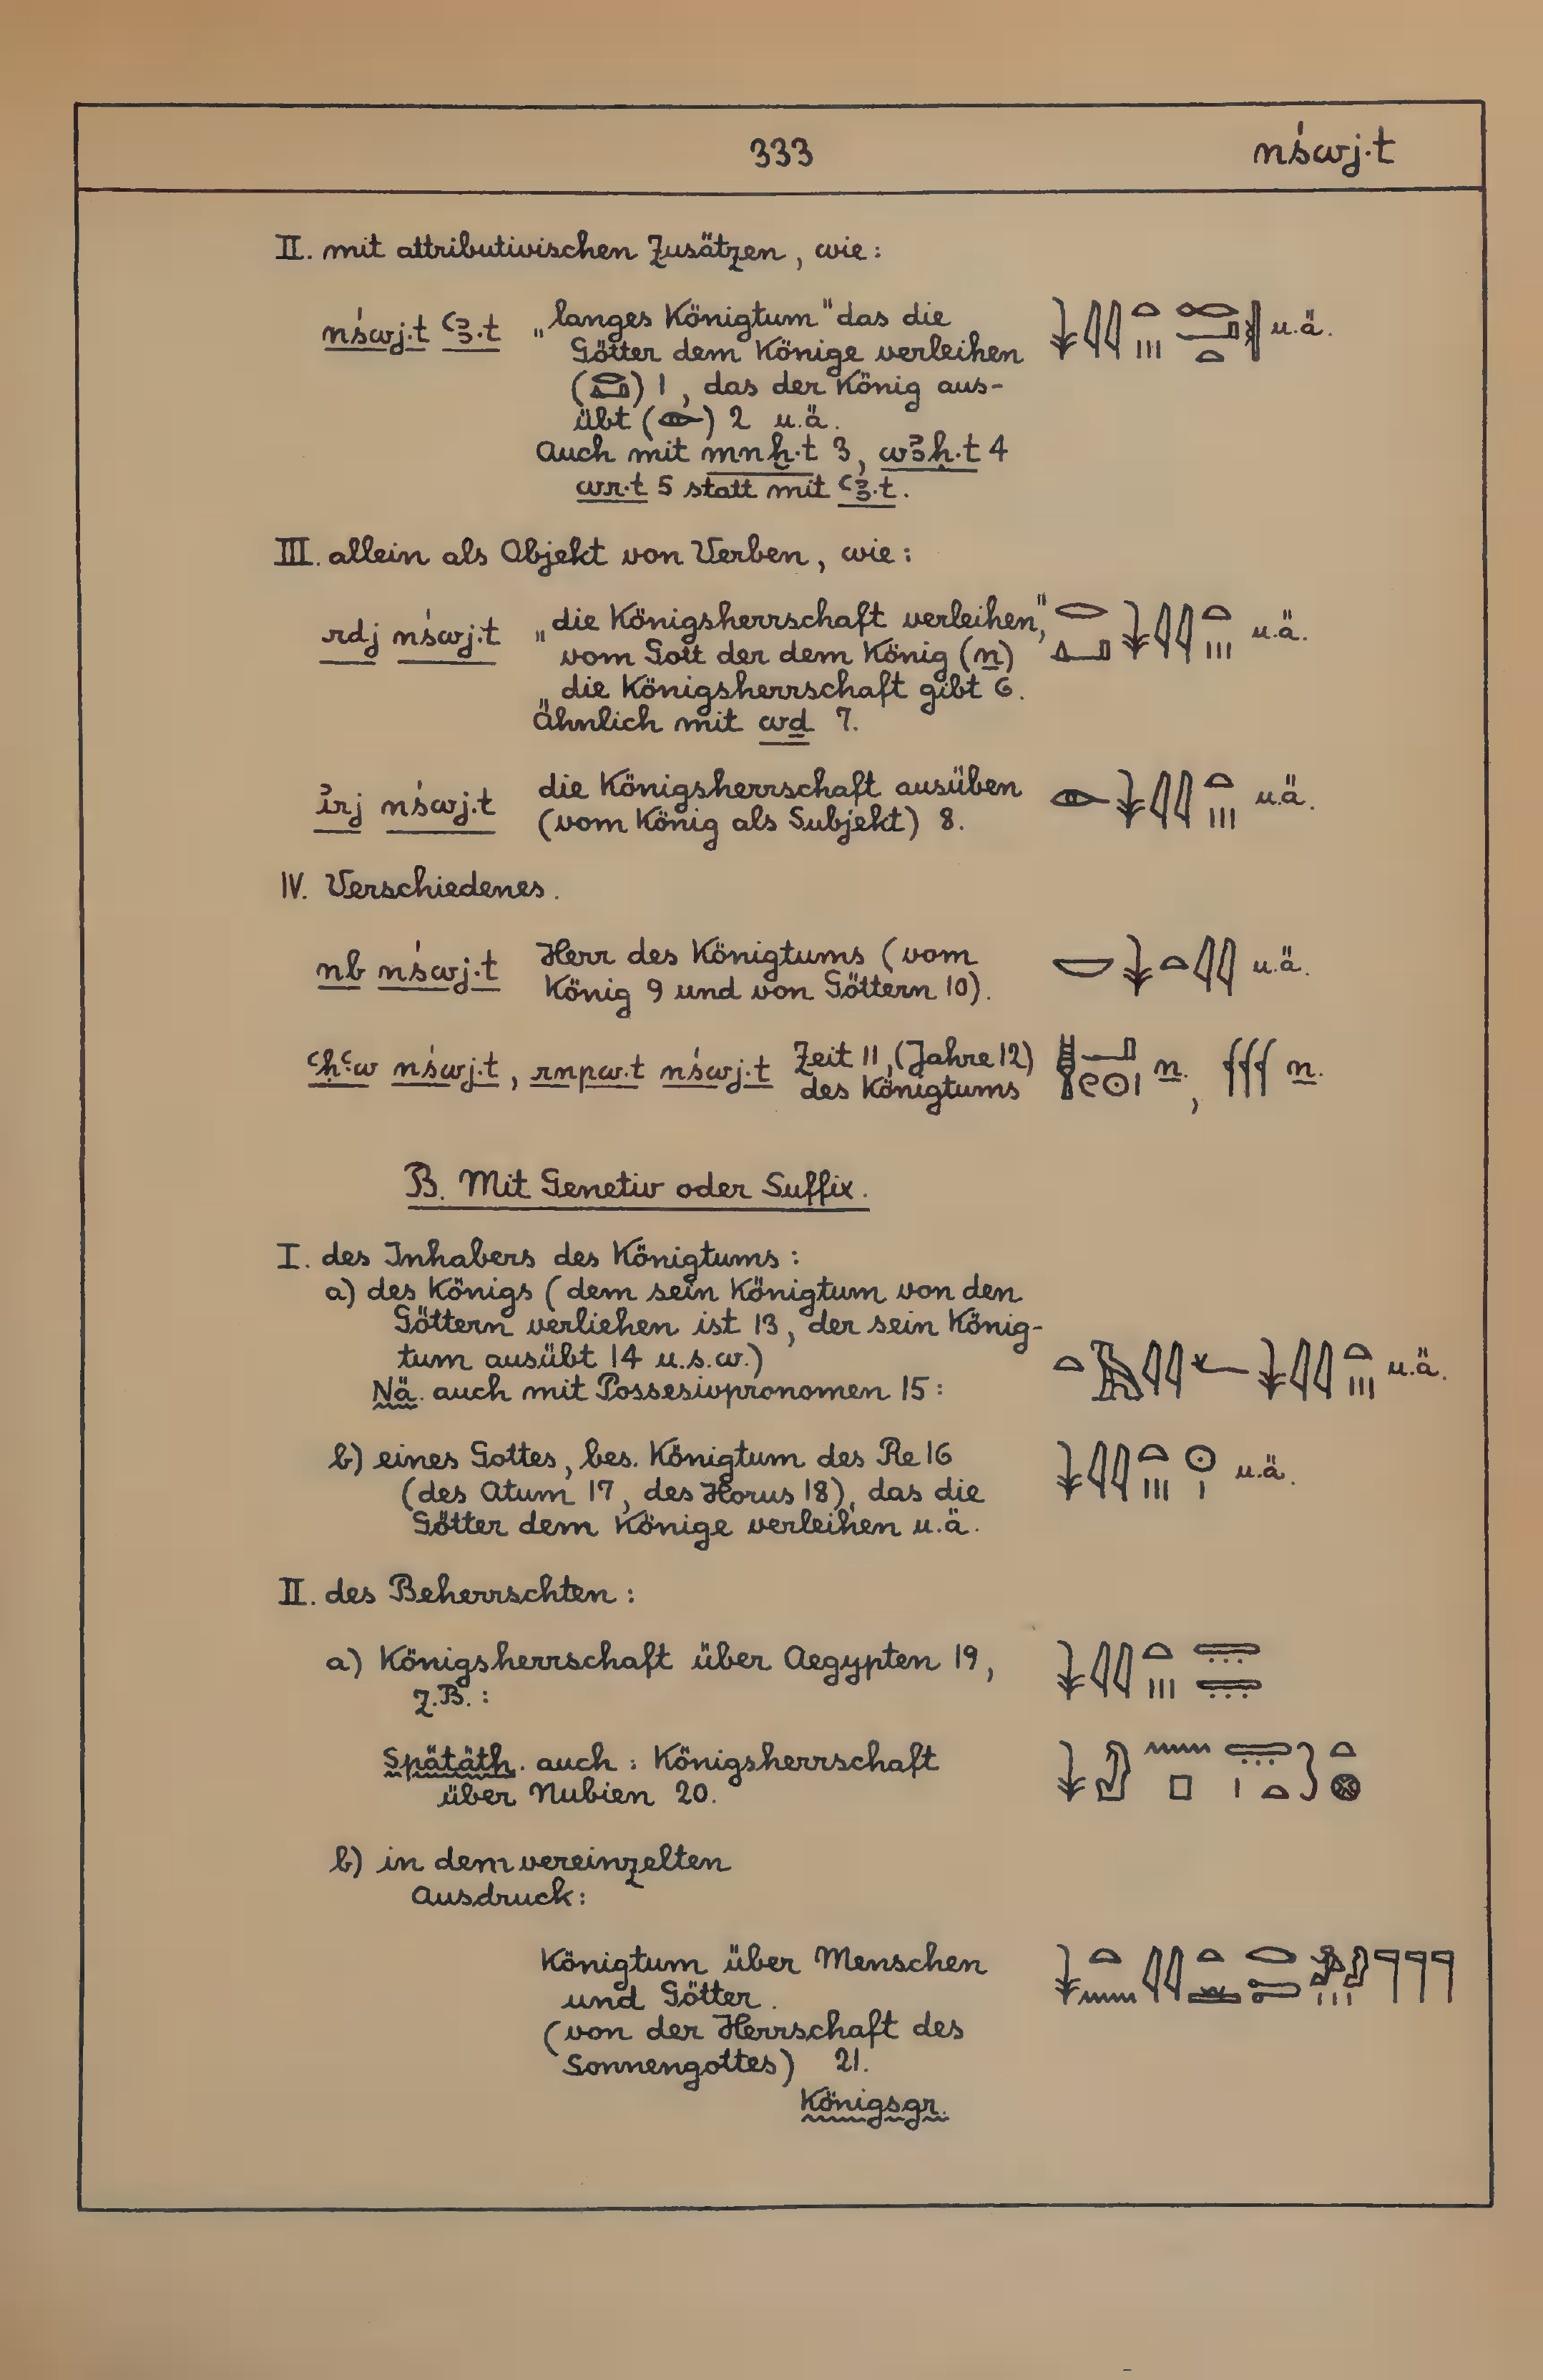 333 nśwj.t
II. mit attributivischen Zusätzen, wie:
nśwj.t ꜥꜣ.t „langes Königtum" das die u.ä.
Götter dem Könige verleihen
(𓂋𓏙) 1, das der König aus-
übt (𓁹) 2 u.ä.
Auch mit mnḫ.t 3, wꜣḥ.t 4
wr.t 5 statt mit ꜥꜣ.t.
III. allein als Objekt von Verben, wie:
rdj nśwj.t „die Königsherrschaft verleihen", 𓂋𓂞𓇓𓇋𓇋𓏏𓏥 u.ä.
vom Gott der dem König (n)
die Königsherrschaft gibt 6.
Ähnlich mit wḏ 7.
ı͗rj nśwj.t die Königsherrschaft ausüben 𓁹𓇓𓇋𓇋𓏏𓏥 u.ä.
(vom König als Subjekt) 8.
IV. Verschiedenes.
nb nśwj.t Herr des Königtums (vom 𓎟𓇓𓏏𓇋𓇋 u.ä.
König 9 und von Göttern 10).
ꜥḥꜥw nśwj.t, rnpw.t nśwj.t Zeit 11, (Jahre 12) 𓊢𓂝𓏲𓇳𓏤 n., 𓆳𓆳𓆳 n.
des Königtums
B. Mit Genetiv oder Suffix.
I. des Inhabers des Königtums:
a) des Königs (dem sein Königtum von den
Göttern verliehen ist 13, der sein König-
tum ausübt 14 u.s.w.)
Nä. auch mit Possesivpronomen 15: 𓏏𓅮𓇋𓇋𓆑𓇓𓇋𓇋𓏏𓏥 u.ä.
b) eines Gottes, bes. Königtum des Re 16 𓇓𓇋𓇋𓏏𓏥𓇳𓏤 u.ä.
(des Atum 17, des Horus 18), das die
Götter dem Könige verleihen u.ä.
II. des Beherrschten:
a) Königsherrschaft über Aegypten 19, 𓇓𓇋𓇋𓏏𓏥𓇿𓇿
z.B.:
Spätäth. auch: Königsherrschaft
über Nubien 20.
b) in dem vereinzelten
Ausdruck:
Königtum über Menschen
und Götter.
(von der Herrschaft des
Sonnengottes) 21.
Königsgr.